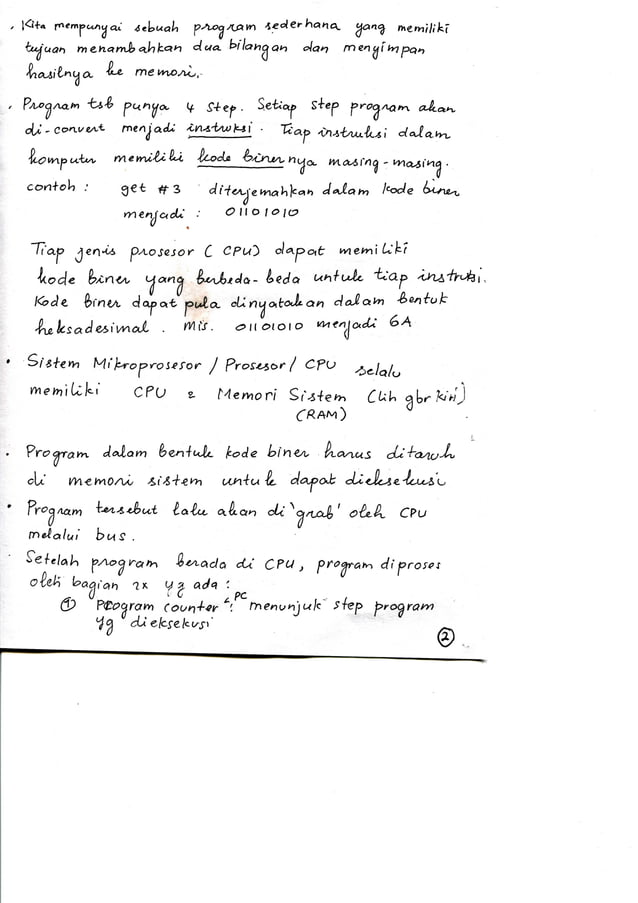 . Kita mempunyai sebuah program sederhana yang memiliki
tujuan menambahkan dua bilangan dan menyimpan
hasilnya ke memori.
. Program tsb punya 4 step. Setiap step program akan
di-convert menjadi instruksi. Tiap instruksi dalam
komputer memiliki kode binernya masing-masing.
contoh : get #3 diterjemahkan dalam kode biner
menjadi : 01101010
Tiap jenis prosesor (CPU) dapat memiliki
kode biner yang berbeda-beda untuk tiap instruksi.
Kode biner dapat pula dinyatakan dalam bentuk
heksadesimal. Mis. 01101010 menjadi 6A
• Sistem Mikroprosesor / Prosesor / CPU selalu
memiliki CPU & Memori Sistem (lih gbr kiri)
(RAM)
. Program dalam bentuk kode biner harus ditaruh
di memori sistem untuk dapat dieksekusi
• Program tersebut lalu akan di 'grab' oleh CPU
melalui bus.
. Setelah program berada di CPU, program diproses
oleh bagian 2x yg ada :
① Program counter : PC menunjuk step program
yg dieksekusi
②